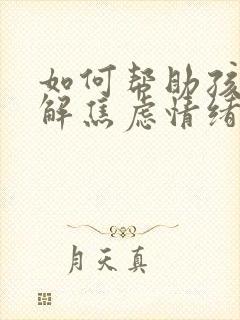 如何帮助孩
解焦虑情绪
月天真